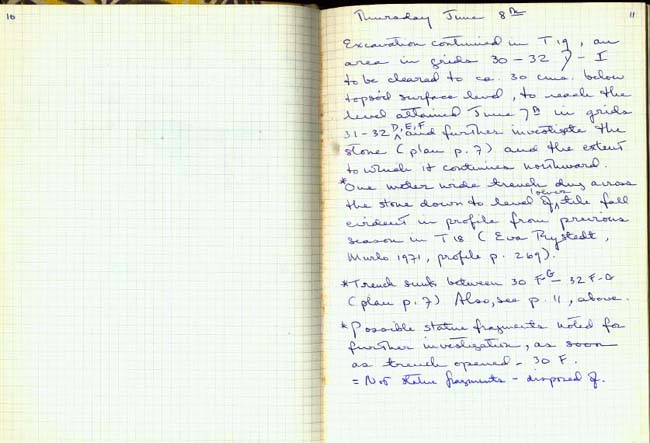 10
11
Thursday June 8th
Excavation continued in T 19, an
area in grids 30 – 32 – I
to be cleared to ca. 30 cms. below
topsoil surface level, to reach the
level attained June 7th in grids
31-32 D, E, F and further investigate the
stone (plan p. 7) and the extent
to which it continues northward.
*One meter wide trench dug across
the stone down to level of lower tile fall
evident in profile from previous
season in T 18 (Eva Rystedt,
Murlo 1971, profile p. 269).
*Trench sunk between 30 F-G – 32 F-G
(plan p. 7) Also, see p. 11, above.
*Possible statue fragments noted for
further investigation, as soon
as trench opened – 30 F.
= Not statue fragments – disposed of.